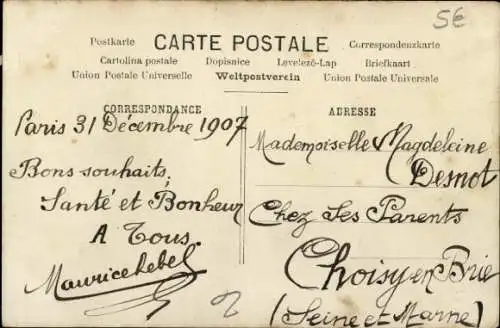 5€
Postkarte CARTE POSTALE Correspondenzkarte
Cartolina postale Dopisnice Levelező-Lap Briefkaart
Union Postale Universelle Weltpostverein Union Postale Universale
CORRESPONDANCE
Paris 31 Décembre 1907
Bons souhaits,
Santé et Bonheur
A Tous.
Maurice Lebel
ADRESSE
Mademoiselle Magdeleine
Desnot
Chez Ses Parents
Choisy en Brie
(Seine et Marne)